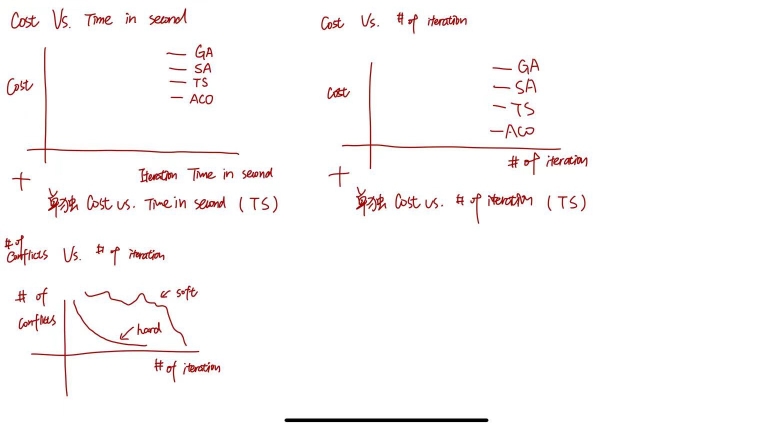 Cost Vs. Time in second
GA
SA
TS
ACO
Cost
Iteration Time in second
+
单独 Cost vs. Time in second (TS)
Cost Vs. # of iteration
GA
SA
TS
ACO
Cost
# of iteration
+
单独 Cost vs. # of iteration (TS)
# of
Conflicts Vs. # of iteration
# of
Conflicts
soft
hard
# of iteration